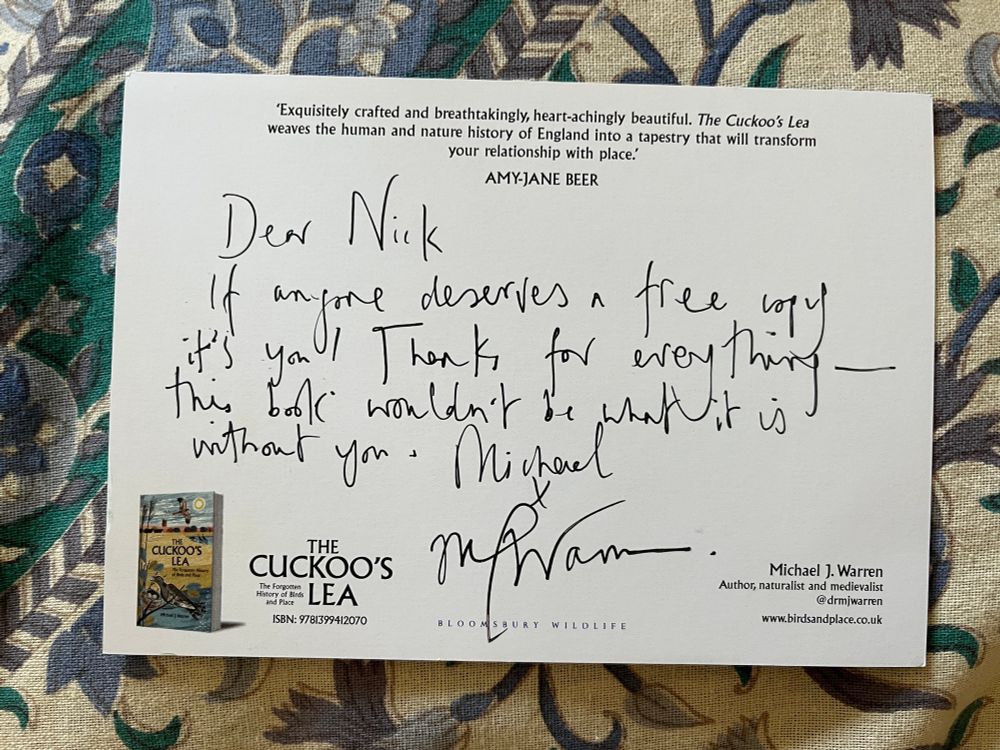 'Exquisitely crafted and breathtakingly, heart-achingly beautiful. The Cuckoo's Lea
weaves the human and nature history of England into a tapestry that will transform
your relationship with place.'
AMY-JANE BEER
Dear Nick
If anyone deserves a free copy
it's you! Thanks for everything —
this book wouldn't be what it is
without you. Michael
x
MJWarren.
THE
CUCKOO'S
LEA
The Forgotten
History of Birds
and Place
THE
CUCKOO'S
The Forgotten
History of Birds
and Place
LEA
ISBN: 9781399412070
BLOOMSBURY WILDLIFE
Michael J. Warren
Author, naturalist and medievalist
@drmjwarren
www.birdsandplace.co.uk